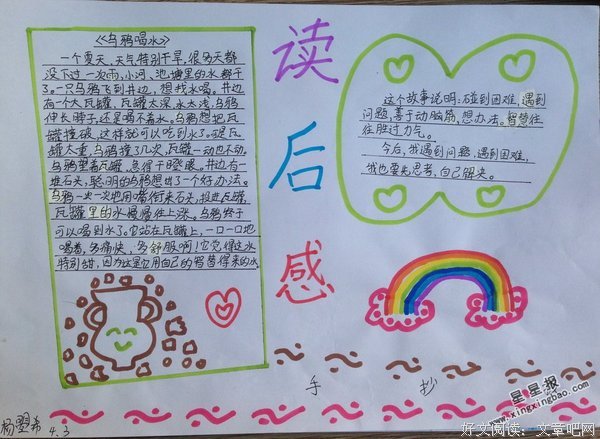 《乌鸦喝水》
一个夏天,天气特别干旱,很多天都
没下过一次雨,小河、池塘里的水都干
了。一只乌鸦飞到井边,想找水喝。井边
有一个大瓦罐,瓦罐太深,水太浅,乌鸦
伸长脖子,还是喝不着水。乌鸦想把瓦
罐撞破,这样就可以吃到水了。可是瓦
罐太重,乌鸦撞了几次,瓦罐一动也不动。
乌鸦望着瓦罐,急得干瞪眼。井边有一
堆石头,聪明的乌鸦想出了一个好办法。
乌鸦一次一次地用嘴衔来石头,投进瓦罐,
瓦罐里的水慢慢往上涨。乌鸦终于
可以喝到水了。它站在瓦罐上,一口一口地
喝着,多痛快、多舒服啊!它觉得这水
特别甜,因为这是它用自己的智慧得来的水。
读后感
这个故事说明:碰到困难,遇到
问题,善于动脑筋,想办法。智慧往
往胜过力气。
今后,我遇到问题,遇到困难,
我也要先思考,自己解决。
手 抄
杨盟希 4.3
星星报
www.xingxingbao.com
好文阅读:文章吧网